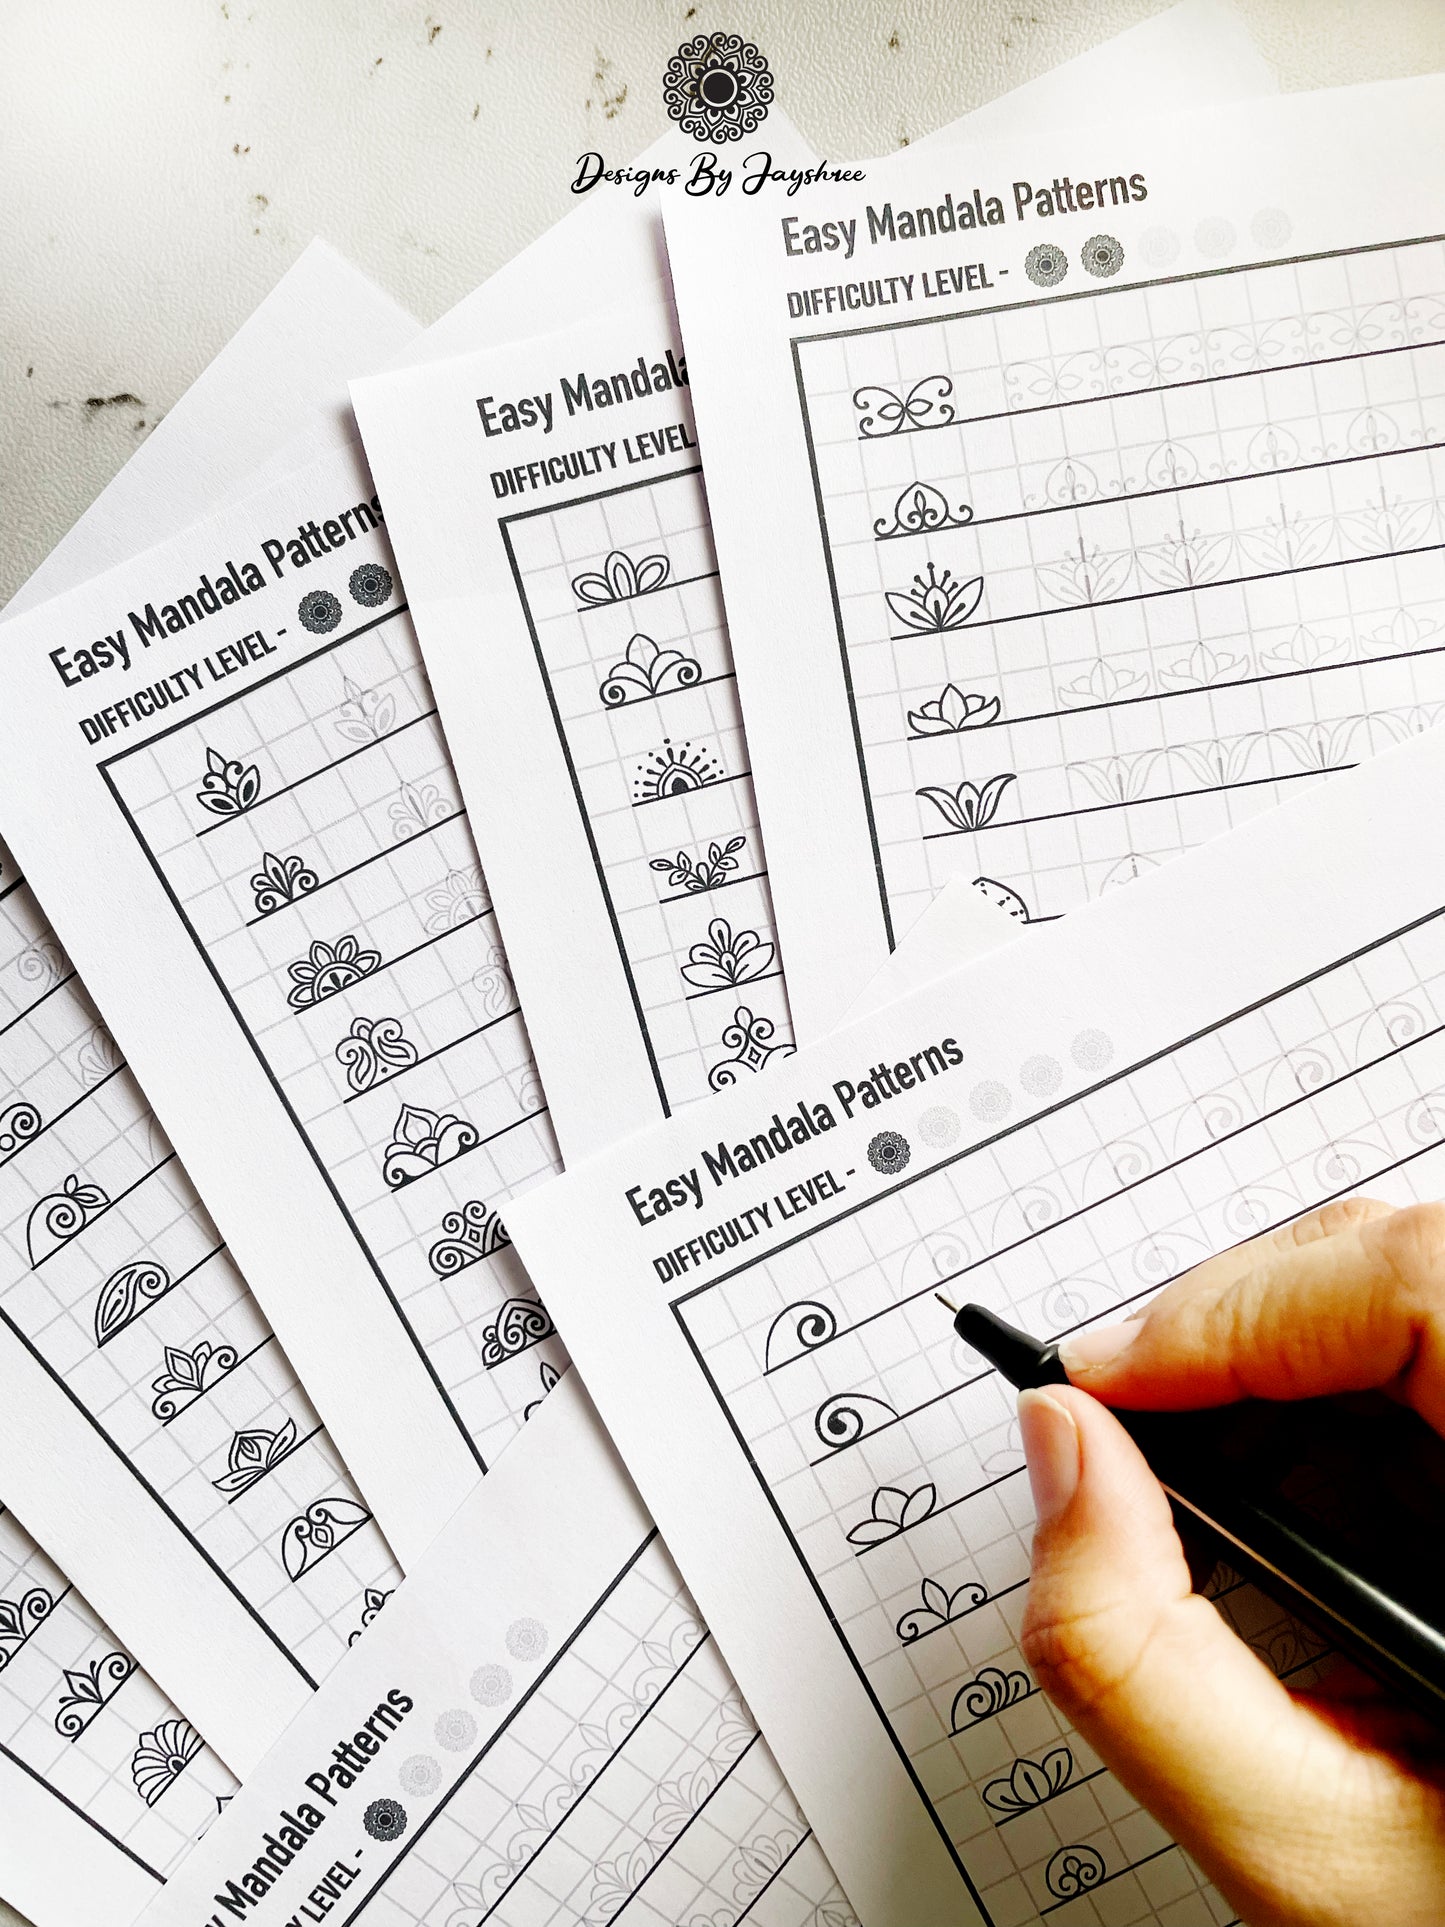 Designs By Jayshree
Easy Mandala Patterns
DIFFICULTY LEVEL -
Easy Mandala
DIFFICULTY LEVEL
Easy Mandala Patterns
DIFFICULTY LEVEL -
Easy Mandala Patterns
DIFFICULTY LEVEL -
Mandala Patterns
LEVEL -